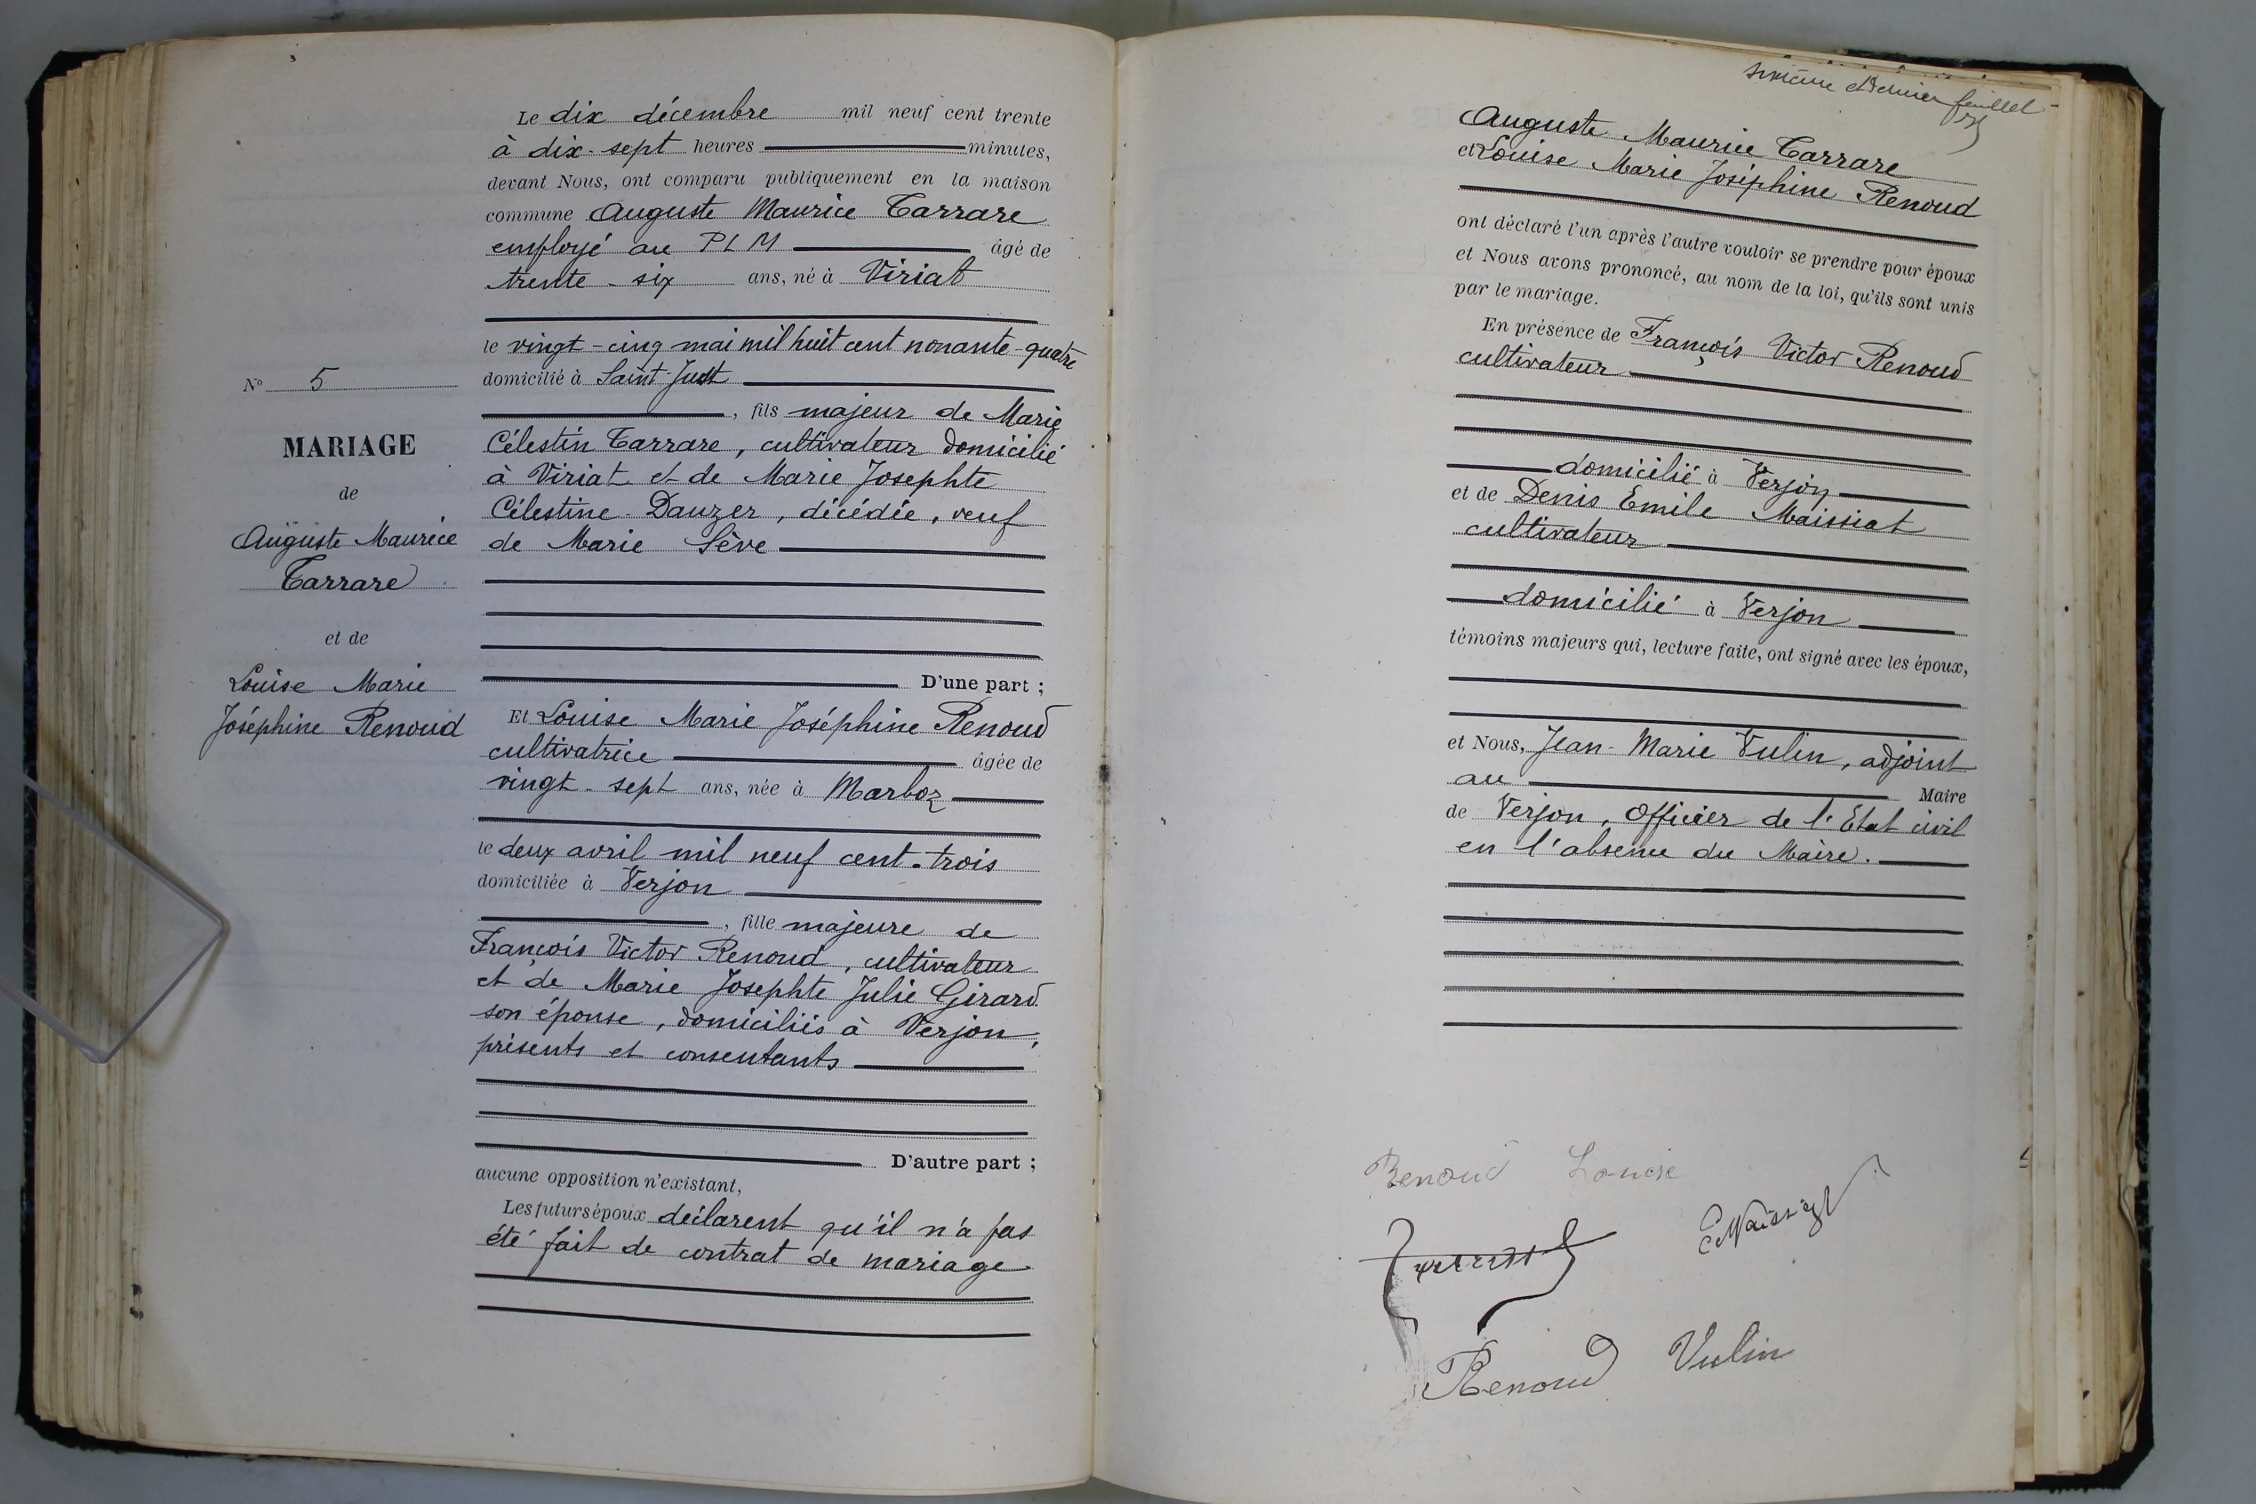 Le dix décembre mil neuf cent trente
à dix-sept heures minutes,
devant Nous, ont comparu publiquement en la maison
commune Auguste Maurice Tarrare
employé au PLM âgé de
trente-six ans, né à Viriat
le vingt-cinq mai mil huit cent nonante-quatre
domicilié à Saint-Just
, fils majeur de Marie
Célestin Tarrare, cultivateur domicilié
à Viriat et de Marie Josephte
Célestine Dauzer, décédée, veuf
de Marie Sève
D'une part ;
Et Louise Marie Joséphine Renoud
cultivatrice âgée de
vingt-sept ans, née à Marboz
le deux avril mil neuf cent-trois
domiciliée à Verjon
, fille majeure de
François Victor Renoud, cultivateur
et de Marie Josephte Julie Girard
son épouse, domiciliés à Verjon,
présents et consentants
D'autre part ;
aucune opposition n'existant,
Les futurs époux déclarent qu'il n'a pas
été fait de contrat de mariage
No 5
MARIAGE
de
Auguste Maurice
Tarrare
et de
Louise Marie
Joséphine Renoud
et dernier feuillet
Auguste Maurice Tarrare
et Louise Marie Joséphine Renoud
ont déclaré l'un après l'autre vouloir se prendre pour époux
et Nous avons prononcé, au nom de la loi, qu'ils sont unis
par le mariage.
En présence de François Victor Renoud
cultivateur
domicilié à Verjon
et de Denis Emile Maissiat
cultivateur
domicilié à Verjon
témoins majeurs qui, lecture faite, ont signé avec les époux,
et Nous, Jean-Marie Vulin, adjoint
au Maire
de Verjon, Officier de l'Etat civil
en l'absence du Maire.
Renoud Louise
E Maissiat
Tarrare
Renoud Vulin